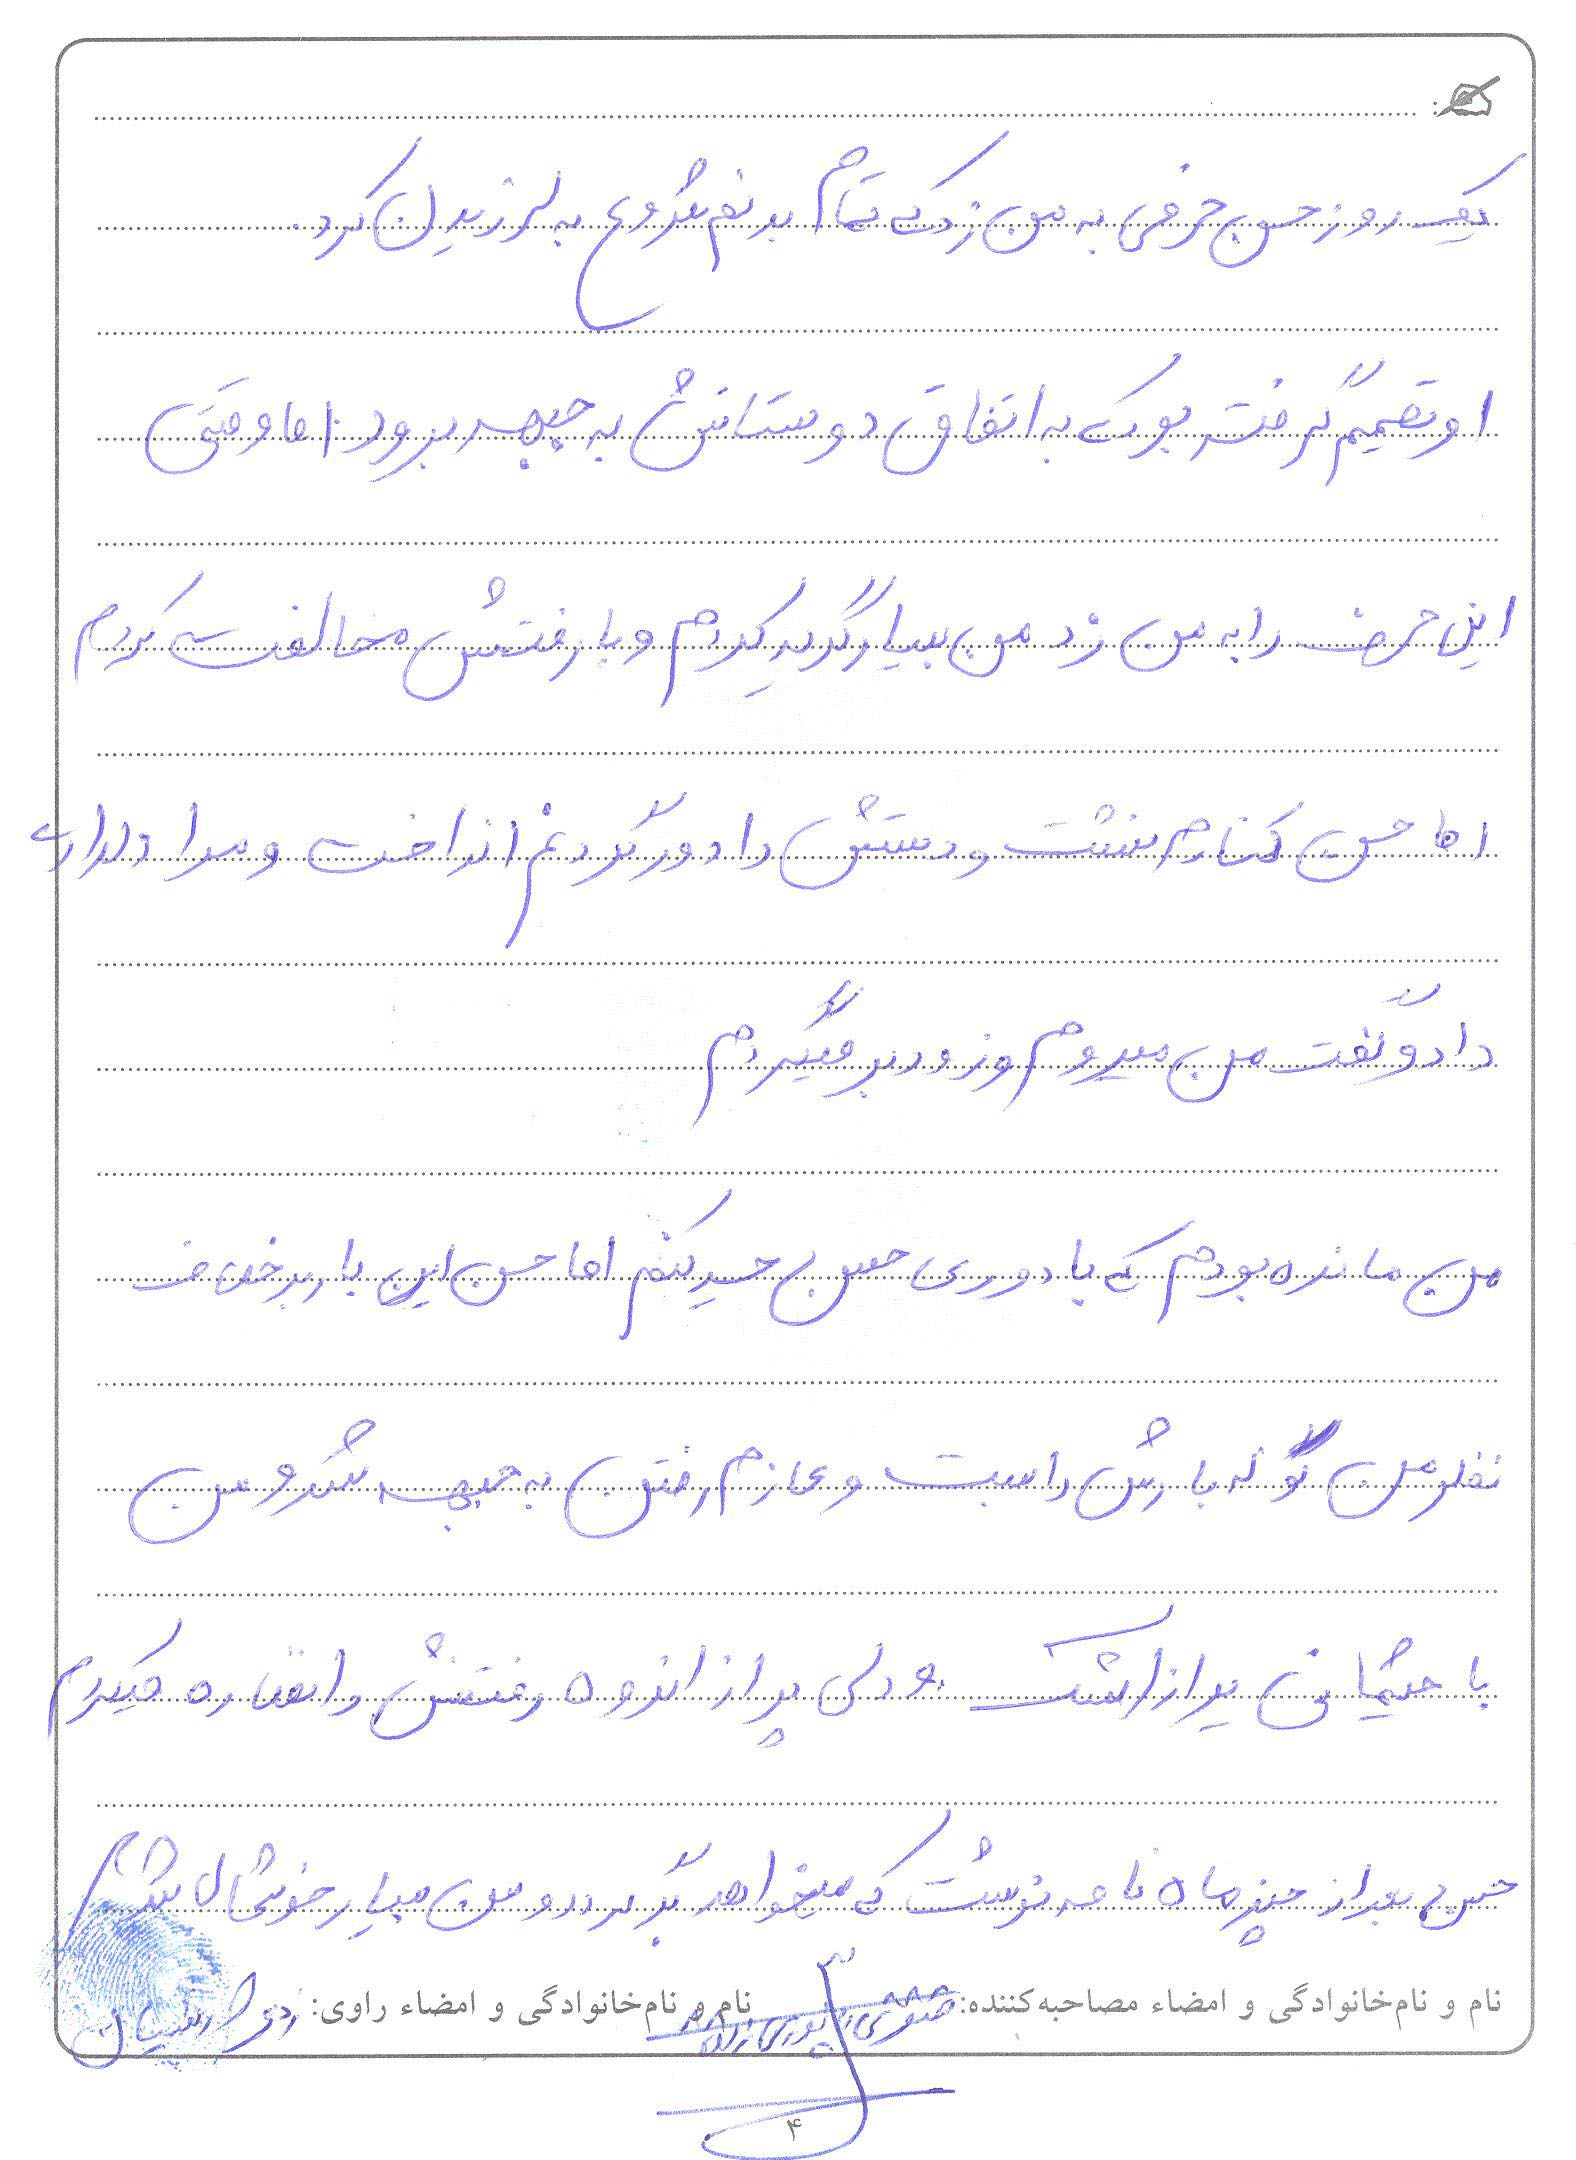 یک روز حسن حرفی به من زد که تمام بدنم شروع به لرزیدن کرد.
او تصمیم گرفته بود که به اتفاق دوستانش به جبهه برود. اما وقتی
این حرف را به من زد من بسیار گریه کردم و با رفتنش مخالفت کردم
اما حسن کنارم نشست و دستش را دور گردنم انداخت و مرا دلداری
داد و گفت من میروم و زود بر میگردم
من مانده بودم که با دوری حسن چه کنم اما حسن این بار بر خلاف
نظر من کوله بارش را بست و عازم رفتن به جبهه شد و من
با چشمانی پر از اشک و دلی پر از اندوه رفتنش را نظاره میکردم
حسن بعد از چند ماه نامه نوشت که میخواهد برگردد و من بسیار خوشحال شدم
نام و نام‌خانوادگی و امضاء مصاحبه‌کننده:
نام و نام‌خانوادگی و امضاء راوی:
۴